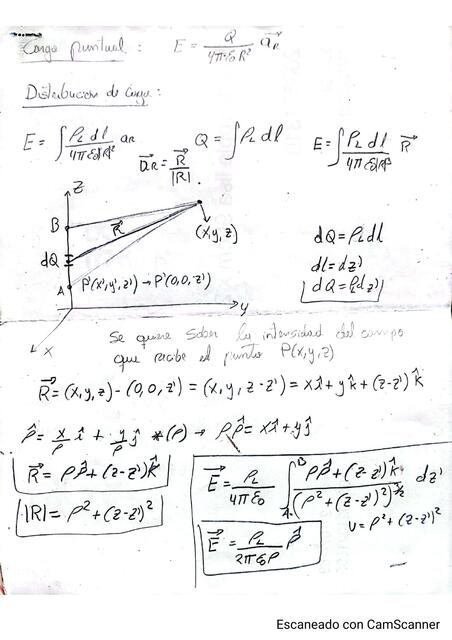 Carga puntual: E = Q / 4πε₀R² a⃗_R
Distribucion de carga:
E = ∫ ρ_L dl / 4πε₀|R|² a_R    a⃗_R = R⃗ / |R|.    Q = ∫ ρ_L dl    E = ∫ ρ_L dl / 4πε₀|R|³ R⃗
Z
B
R⃗
(x,y,z)
dQ
A
P'(x',y',z') → P'(0,0,z')
y
x
dQ = ρ_L dl
dl = dz'
dQ = ρ_L dz'
Se quiere saber la intensidad del campo
que recibe el punto P(x,y,z)
R⃗ = (x,y,z) - (0,0,z') = (x,y,z-z') = xî + yk̂ + (z-z') k̂
ρ̂ = x/ρ î + y/ρ ĵ *(ρ) → ρρ̂ = xî + yĵ
R⃗ = ρρ̂ + (z-z')k̂
|R| = ρ² + (z-z')²
E⃗ = ρ_L / 4πε₀ ∫_A^B ρρ̂ + (z-z')k̂ / (ρ² + (z-z')²)^3/2 dz'
U = ρ² + (z-z')²
E⃗ = ρ_L / 2πε₀ρ ρ̂
Escaneado con CamScanner